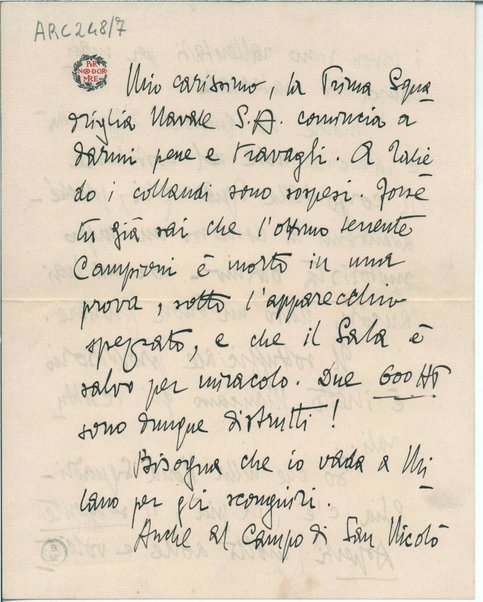 ARC 248/7
PER
NON DOR
MIRE
Mio carissimo, la Prima Squa
driglia Navale S.A. comincia a
darmi pene e travagli. A Talie
do i collaudi sono sospesi. Forse
tu già sai che l'ottimo tenente
Campioni è morto in una
prova, sotto l'apparecchio
spezzato, e che il Sala è
salvo per miracolo. Due 600 HP
sono dunque distrutti!
Bisogna che io vada a Mi
lano per gli scongiuri.
Anche al Campo di San Nicolò